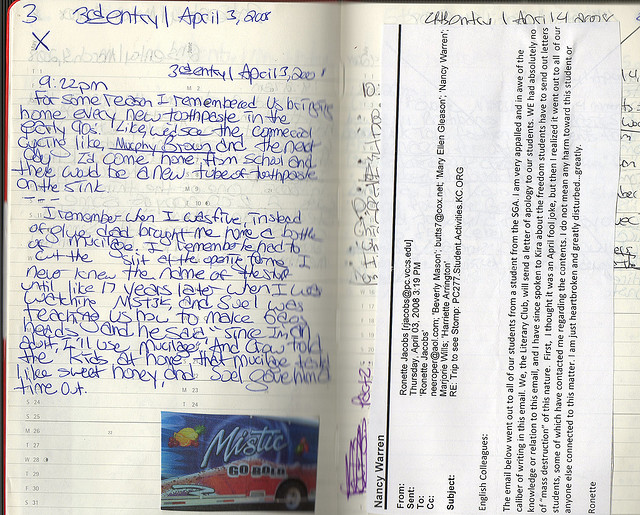 3 3rd entry | April 3, 2008
X
3rd entry | April 3, 200
9:22pm
For some reason I remembered us bringing
home every new toothpaste in the
early 90s. Like, we'd see the commercial
during like, Murphy Brown and the next
day I'd come home from school and
there would be a new tube of toothpaste
on the sink.
I remember when I was five, instead
of glue, dad brought me home a bottle
of mucilage. I remember he had to
cut the slit at the open for me. I
never knew the name of the stuff
until like 17 years later when I was
watching MST3K and Joel was
teaching us how to make
heads and he said "since I'm
adult, I'll use mucilage." And Crow told
the kids at home, that mucilage tasted
like sweet honey, and Joel gave him a
time out.
S 24
S 25
M 26
T 27
W 28
T 29
F 30
S 31
M 23
Mistic
GO BOLD
entry | April 4 2008
Nancy Warren
From: Ronette Jacobs [rjacobs@pc.vccs.edu]
Sent: Thursday, April 03, 2008 3:19 PM
To: 'Ronette Jacobs'
Cc: neeroper@aol.com; 'Beverly Mason'; butts7@cox.net; 'Mary Ellen Gleason'; 'Nancy Warren';
Marjorie Wills; 'Harriette Arrington'
Subject: RE: Trip to see Stomp: PC277.Student.Activities.KC.ORG
English Colleagues:
The email below went out to all of our students from a student from the SGA. I am very appalled and in awe of the
caliber of writing in this email. We, the Literary Club, will send a letter of apology to our students. WE had absolutely no
knowledge or relation to this email, and I have since spoken to Kira about the freedom students have to send out letters
of "mass destruction" of this nature. First, I thought it was an April fool joke, but then I realized it went out to all of our
students, some of which have contacted me regarding the contents. I do not mean any harm toward this student or
anyone else connected to this matter. I am just heartbroken and greatly disturbed...greatly.
Ronette